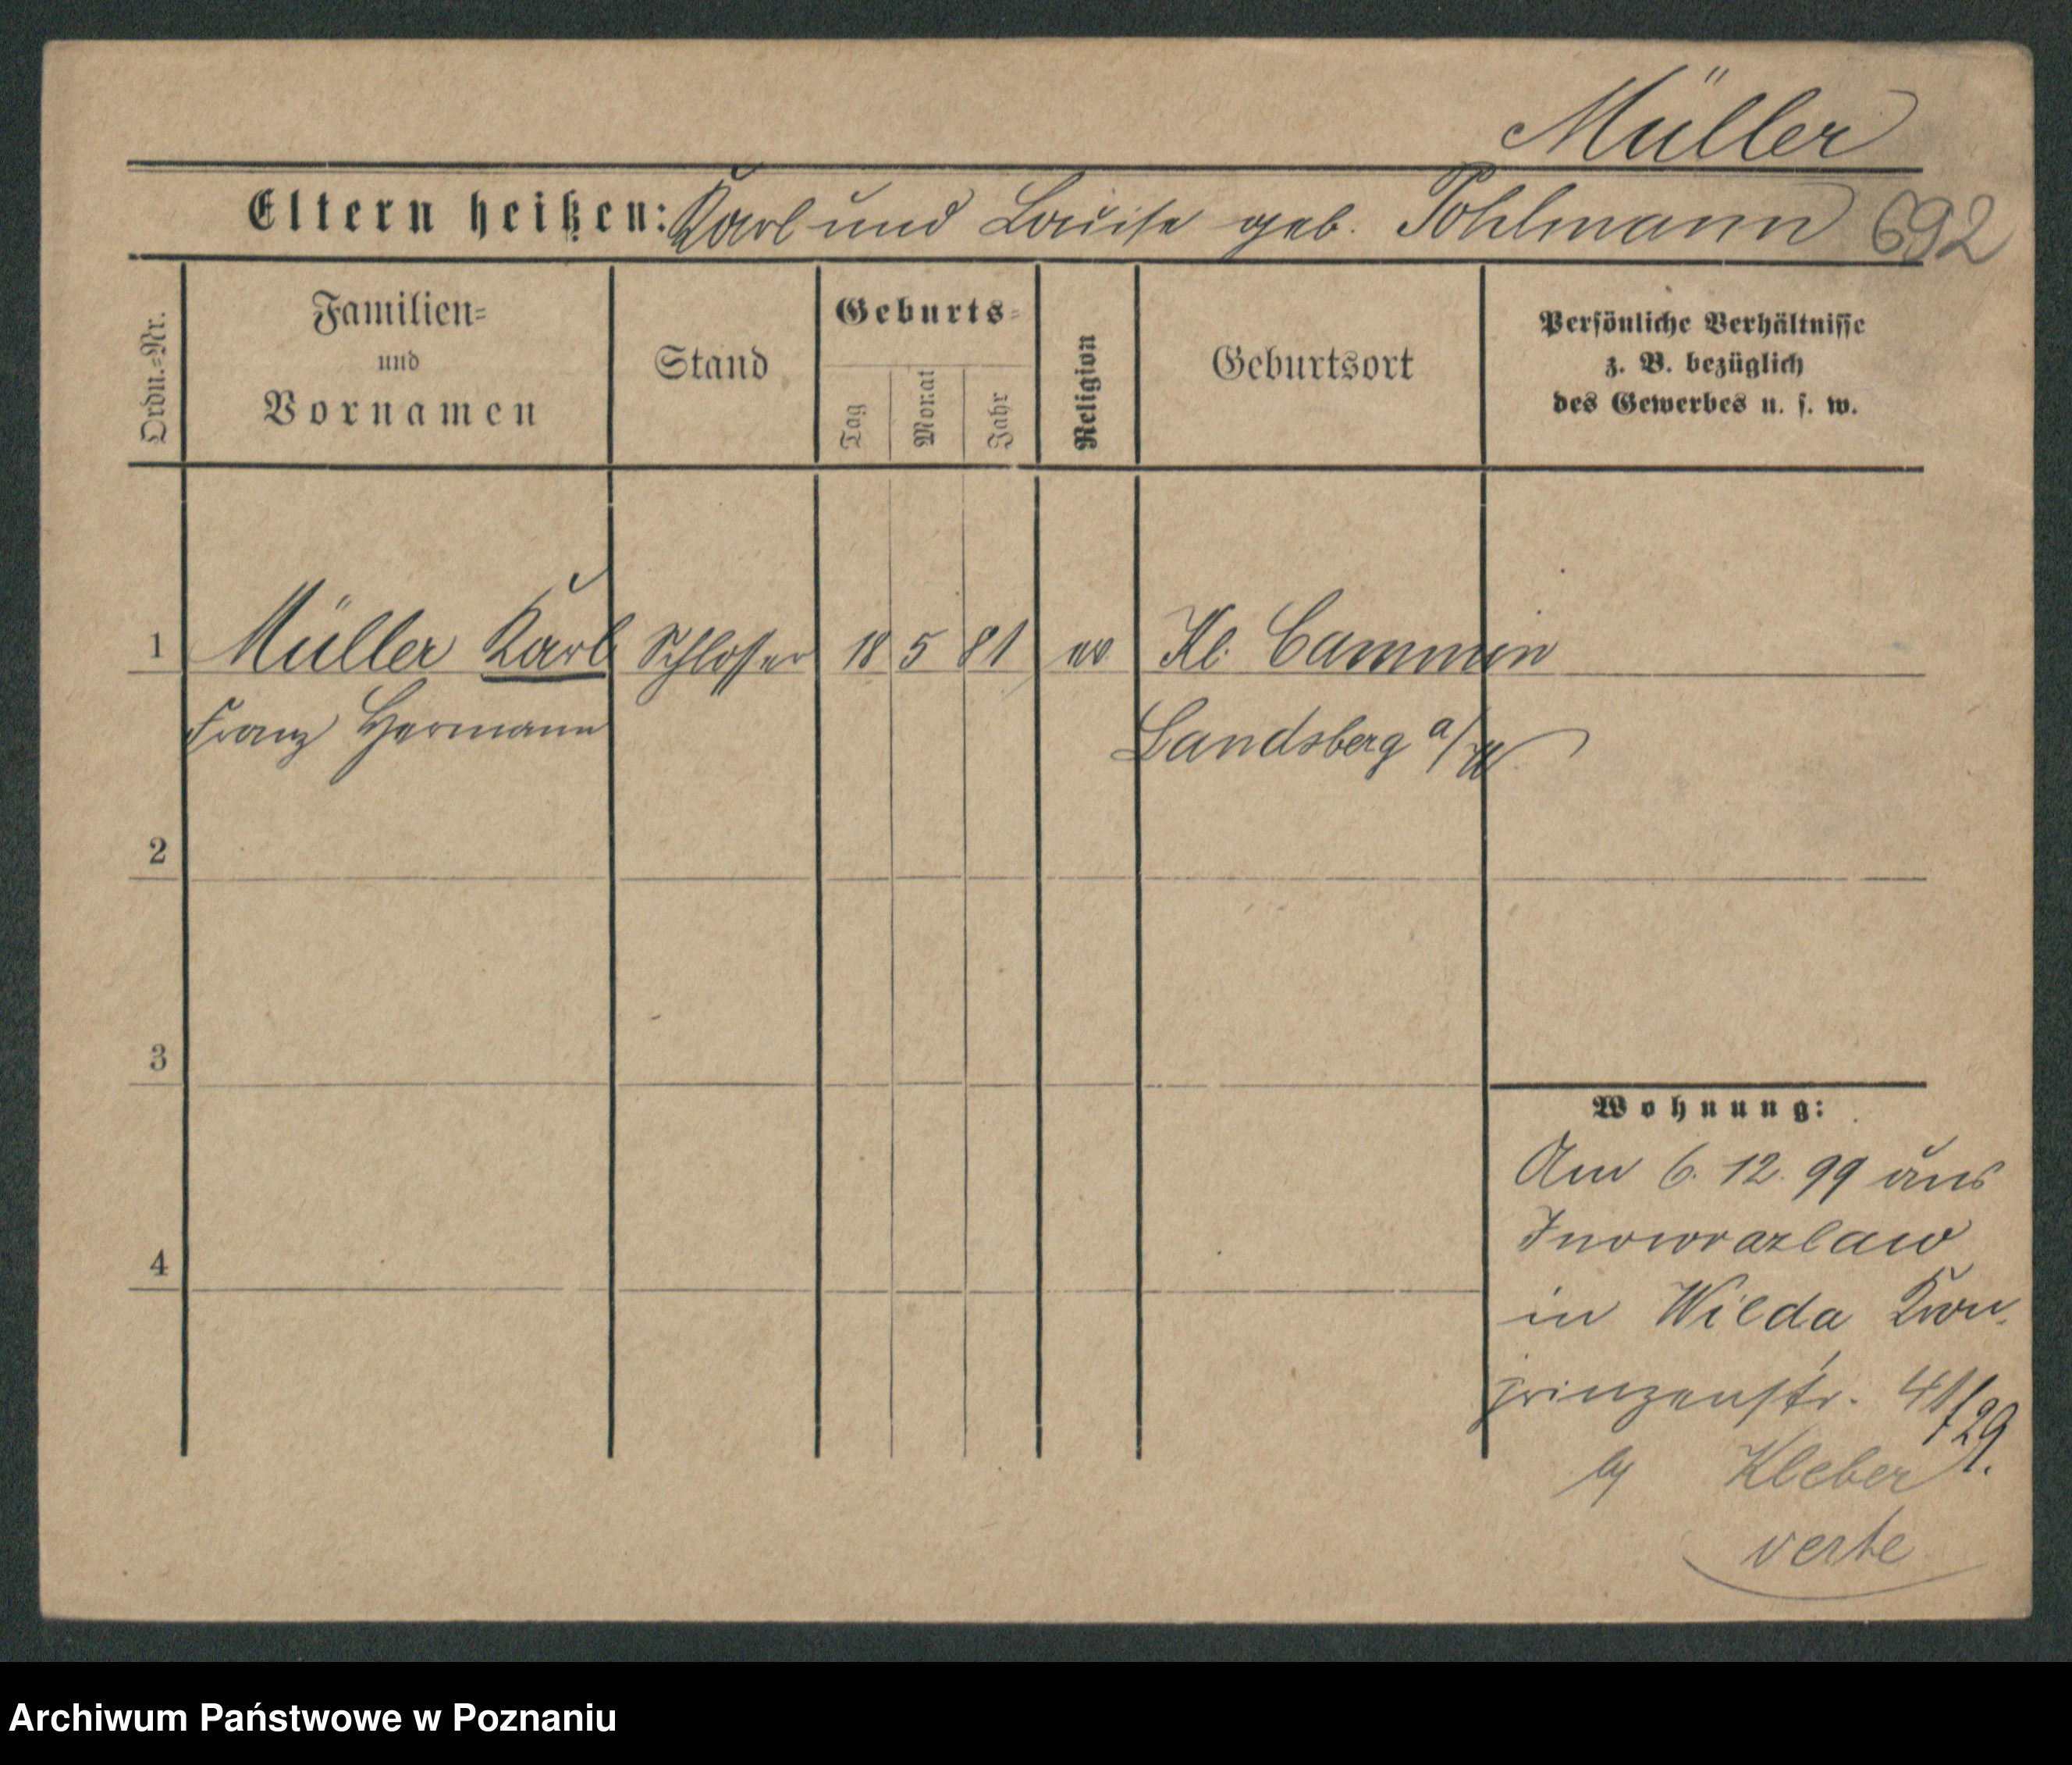 Müller
Eltern heißen: Karl und Louise geb. Pohlmann 692
Ordn.=Nr.
Familien=
und
Vornamen
Stand
Geburts=
Tag
Monat
Jahr
Religion
Geburtsort
Persönliche Verhältnisse
z. B. bezüglich
des Gewerbes u. s. w.
1 Müller Karl Schlosser 18 5 81 ev Kl. Cammin
Franz Hermann Landsberg a/W
2
3
4
Wohnung:
Am 6. 12. 99 aus
Inowrazlaw
in Wilda Kron-
prinzenstr. 41/129.
by Kleber
verte
Archiwum Państwowe w Poznaniu